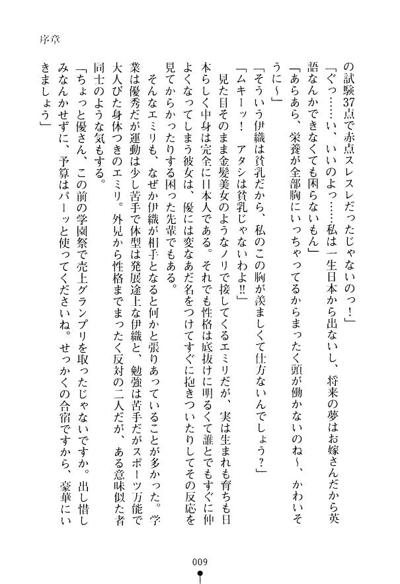 の試験37点で赤点スレスレだったじゃないのっ！」
「ぐっ……い、いいのよっ……私は一生日本から出ないし、将来の夢はお嫁さんだから英
語なんかできなくても困らないもん」
「あらあら、栄養が全部胸にいっちゃってるからまったく頭が働かないのね～、かわいそ
うに～」
「そういう伊織は貧乳だから、私のこの胸が羨ましくて仕方ないんでしょう？」
「ムキーッ！　アタシは貧乳じゃないわよ!!」
　見た目そのまま金髪美女のようなノリで接してくるエミリだが、実は生まれも育ちも日
本らしく中身は完全に日本人である。それでも性格は底抜けに明るくて誰とでもすぐに仲
よくなってしまう彼女は、優には変なあだ名をつけてすぐに抱きついたりしてその反応を
見てからかったりする困った先輩でもある。
　そんなエミリも、なぜか伊織が相手となると何かと張りあっていることが多かった。学
業は優秀だが運動は少し苦手で体型は発展途上な伊織と、勉強は苦手だがスポーツ万能で
大人びた身体つきのエミリ。外見から性格までまったく反対の二人だが、ある意味似た者
同士のような気もする。
「ちょっと優さん、この前の学園祭で売上グランプリを取ったじゃないですか。出し惜し
みなんかせずに、予算はパーッと使ってくださいね。せっかくの合宿ですから、豪華にい
きましょう」
序章
009